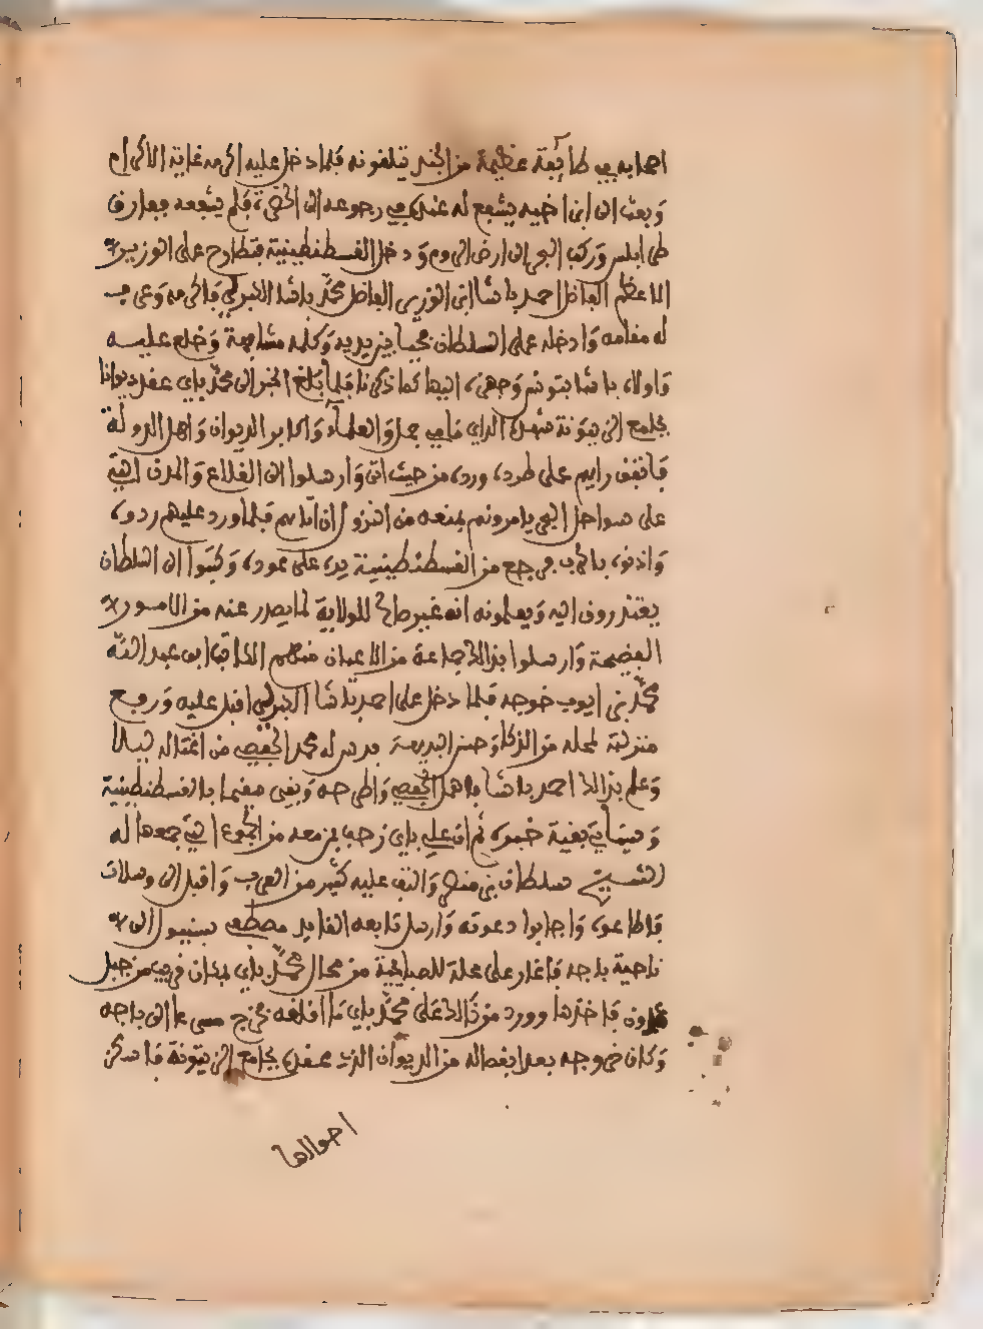 اصحابه في طائفة عظيمة من الجند يتلقونه فلما دخل عليه اكرمه غاية الاكرام
وبعث الى ابن اخيه يشفع له عنده في رجوعه الى الحضرة فلم يشفعه ففارق
طرابلس وركب البحر الى ارض الروم ودخل القسطنطينية فتطارح على الوزير
الاعظم الفاضل احمد باشا ابن الوزير الفاضل محمد باشا الكبرلي فاكرمه وعرف
له مقامه وادخله على السلطان محيا بين يديه وكلمه مشافهة وخلع عليه
واولاه باشا بتونس وجهزه اليها كما ذكرنا فلما بلغ الخبر الى محمد باي عقد ديوانا
بجامع الزيتونة شهده الداي مامي جمل والعلماء واكابر الديوان واهل الدولة
فاتفق رايهم على طرده ورده من حيث اتى وارسلوا الى القلاع والمدن التي
على سواحل البحر يامرونهم بمنعه من النزول ان اتاهم فلما ورد عليهم ردوه
واذنوه بالحرب فرجع من القسطنطينية يده على عوده وكتبوا الى السلطان
يعتذرون اليه ويعلمونه انه غير صالح للولاية لما يصدر عنه من الامور
الفضيحة وارسلوا بذلك جماعة من الاعيان منهم الكاتب ابو عبد الله
محمد بن ايوب خوجه فلما دخل على احمد باشا الكبرلي اقبل عليه ورفع
منزلته لمحله من الذكاء وحسن البديهة فدس له محمد الحفصي من اغتاله ليلا
وعلم بذلك احمد باشا فاهمل الحفصي واطرحه وبقي مقيما بالقسطنطينية
وسياتي بقية خبره ثم ان علي باي زحف بمن معه من الجموع التي جمعها له
الشيخ سلطان بن منصر والتف عليه كثير من العرب واقبل الى وسلات
فاطاعوه واجابوا دعوته وارسل تابعه القايد مصطفى سبنيول الى
ناحية باجه فاغار على محلة للصبايحية من محال محمد باي بمكان قريب من جبل
عمدون فاخذها وورد من ذلك على محمد باي ما اقلقه فخرج مسرعا الى باجه
وكان خروجه بعد انفصاله من الديوان الذي عقده بجامع الزيتونة فاسكن
احوالها